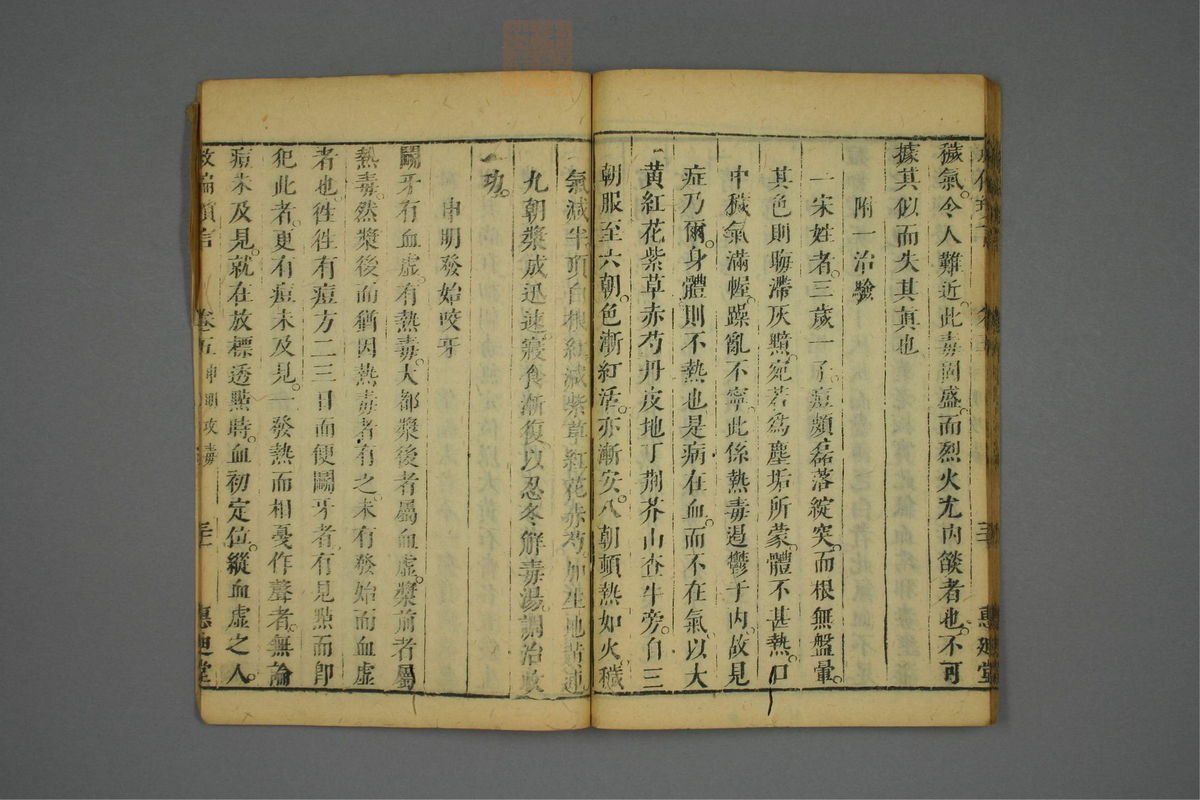 穢氣。令人難近。此毒固盛。而烈火尤內燄者也。不可
據其似而失其眞也
附一治驗
一宋姓者。三歲一子。痘頗磊落綻突。而根無盤暈。
其色則晦滯灰黯。宛若爲塵垢所蒙。體不甚熱。口
中穢氣滿幄。躁亂不寧。此係熱毒遏鬱于內。故見
症乃爾。身體則不熱也。是病在血。而不在氣。以大
黃紅花紫草赤芍丹皮地丁荆芥山查牛旁。自三
朝服至六朝。色漸紅活。亦漸安。八朝頓熱如火。穢
氣減半。頂白根紅。減紫草紅花赤芍。加生地黃連
九朝漿成迅速。寢食漸復。以忍冬解毒湯。調治收
一功。
申明發始咬牙
鬭牙有血虛。有熱毒。大都漿後者屬血虛。漿前者屬
熱毒。然漿後而猶因熱毒者有之。未有發始而血虛
者也。徃徃有痘方二三日而便鬭牙者。有見點而卽
犯此者。更有痘未及見。一發熱而相憂作聲者。無論
痘未及見。就在放標透點時。血初定位。縱血虛之人。
救偏瑣言
卷五
申明攻毒
惠迪堂